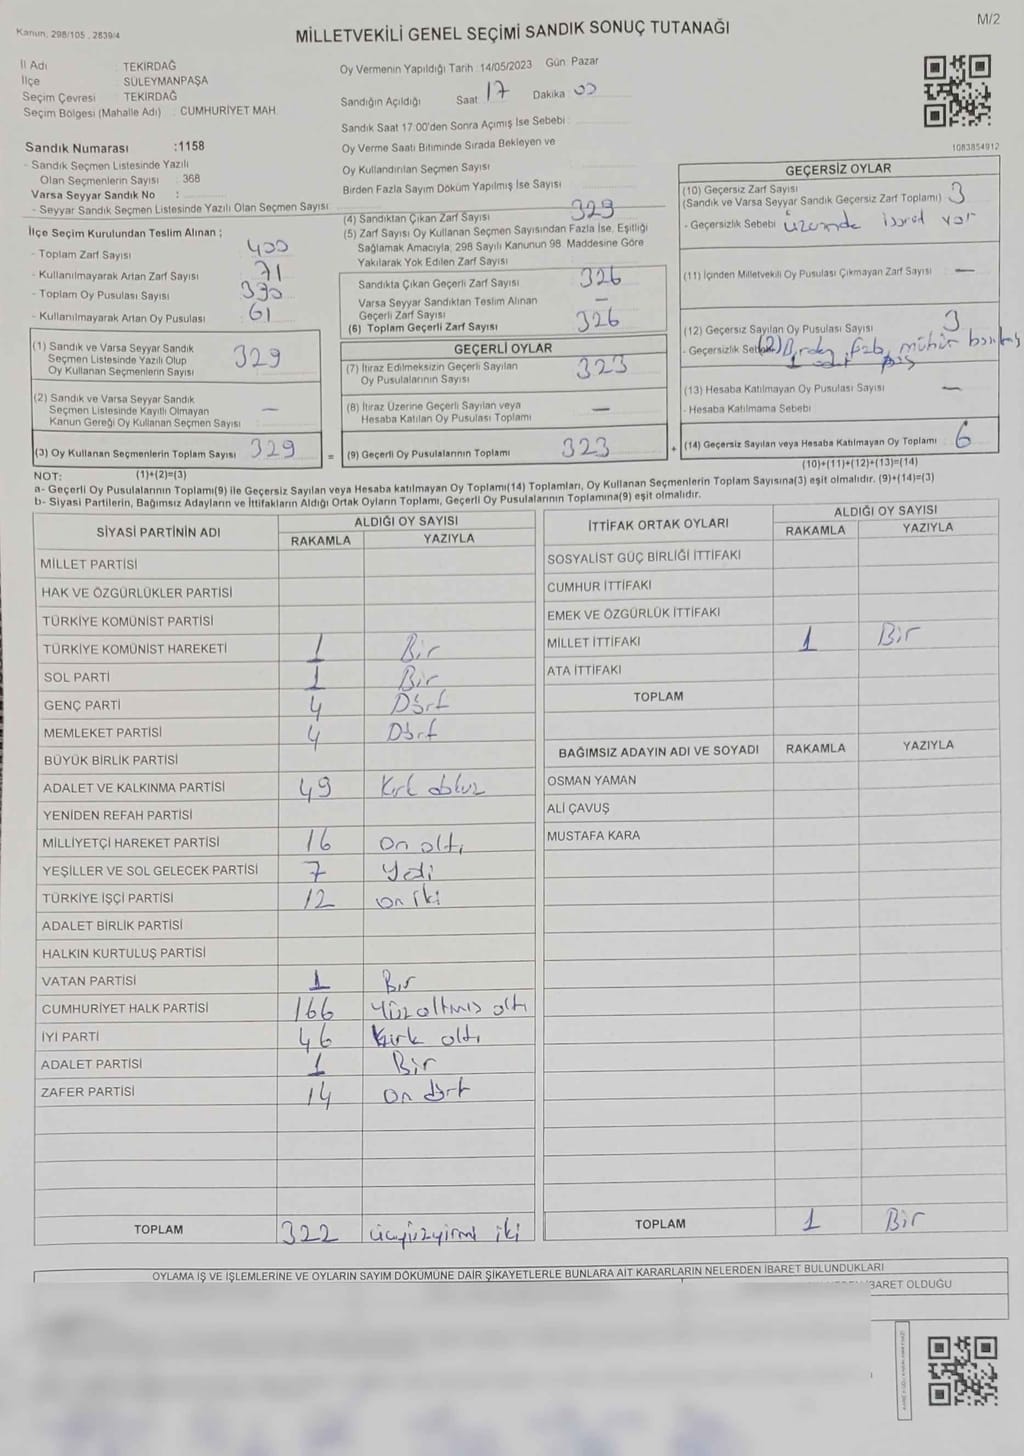 Kanun, 298/105, 2839/4
MİLLETVEKİLİ GENEL SEÇİMİ SANDIK SONUÇ TUTANAĞI
M/2
İl Adı : TEKİRDAĞ
İlçe : SÜLEYMANPAŞA
Seçim Çevresi : TEKİRDAĞ
Seçim Bölgesi (Mahalle Adı) : CUMHURİYET MAH.
Sandık Numarası :1158
- Sandık Seçmen Listesinde Yazılı
Olan Seçmenlerin Sayısı : 368
Varsa Seyyar Sandık No :
- Seyyar Sandık Seçmen Listesinde Yazılı Olan Seçmen Sayısı :
İlçe Seçim Kurulundan Teslim Alınan ;
- Toplam Zarf Sayısı : 400
- Kullanılmayarak Artan Zarf Sayısı : 71
- Toplam Oy Pusulası Sayısı : 390
- Kullanılmayarak Artan Oy Pusulası : 61
(1) Sandık ve Varsa Seyyar Sandık
Seçmen Listesinde Yazılı Olup
Oy Kullanan Seçmenlerin Sayısı 329
(2) Sandık ve Varsa Seyyar Sandık
Seçmen Listesinde Kayıtlı Olmayan
Kanun Gereği Oy Kullanan Seçmen Sayısı : —
(3) Oy Kullanan Seçmenlerin Toplam Sayısı : 329
Oy Vermenin Yapıldığı Tarih :14/05/2023 Gün: Pazar
Sandığın Açıldığı Saat : 17 Dakika : 00
Sandık Saat 17:00'den Sonra Açımış İse Sebebi :
Oy Verme Saati Bitiminde Sırada Bekleyen ve
Oy Kullandırılan Seçmen Sayısı :
Birden Fazla Sayım Döküm Yapılmış İse Sayısı :
(4) Sandıktan Çıkan Zarf Sayısı : 329
(5) Zarf Sayısı Oy Kullanan Seçmen Sayısından Fazla İse, Eşitliği
Sağlamak Amacıyla, 298 Sayılı Kanunun 98. Maddesine Göre
Yakılarak Yok Edilen Zarf Sayısı :
Sandıkta Çıkan Geçerli Zarf Sayısı : 326
Varsa Seyyar Sandıktan Teslim Alınan
Geçerli Zarf Sayısı : —
(6) Toplam Geçerli Zarf Sayısı : 326
GEÇERLİ OYLAR
(7) İtiraz Edilmeksizin Geçerli Sayılan
Oy Pusulalarının Sayısı : 323
(8) İtiraz Üzerine Geçerli Sayılan veya
Hesaba Katılan Oy Pusulası Toplamı : —
= (9) Geçerli Oy Pusulalarının Toplamı : 323 +
1083854912
GEÇERSİZ OYLAR
(10) Geçersiz Zarf Sayısı
(Sandık ve Varsa Seyyar Sandık Geçersiz Zarf Toplamı) : 3
- Geçersizlik Sebebi : üzerinde işaret var
(11) İçinden Milletvekili Oy Pusulası Çıkmayan Zarf Sayısı : —
(12) Geçersiz Sayılan Oy Pusulası Sayısı : 3
- Geçersizlik (2) mühür
(13) Hesaba Katılmayan Oy Pusulası Sayısı : —
- Hesaba Katılmama Sebebi :
(14) Geçersiz Sayılan veya Hesaba Katılmayan Oy Toplamı : 6
NOT: (1)+(2)=(3)
(10)+(11)+(12)+(13)=(14)
a- Geçerli Oy Pusulalarının Toplamı(9) ile Geçersiz Sayılan veya Hesaba katılmayan Oy Toplamı(14) Toplamları, Oy Kullanan Seçmenlerin Toplam Sayısına(3) eşit olmalıdır. (9)+(14)=(3)
b- Siyasi Partilerin, Bağımsız Adayların ve İttifakların Aldığı Ortak Oyların Toplamı, Geçerli Oy Pusulalarının Toplamına(9) eşit olmalıdır.
SİYASİ PARTİNİN ADI ALDIĞI OY SAYISI
RAKAMLA YAZIYLA
MİLLET PARTİSİ
HAK VE ÖZGÜRLÜKLER PARTİSİ
TÜRKİYE KOMÜNİST PARTİSİ
TÜRKİYE KOMÜNİST HAREKETİ 1 Bir
SOL PARTİ 1 Bir
GENÇ PARTİ 4 Dört
MEMLEKET PARTİSİ 4 Dört
BÜYÜK BİRLİK PARTİSİ
ADALET VE KALKINMA PARTİSİ 49 Kırk dokuz
YENİDEN REFAH PARTİSİ
MİLLİYETÇİ HAREKET PARTİSİ 16 on altı
YEŞİLLER VE SOL GELECEK PARTİSİ 7 Yedi
TÜRKİYE İŞÇİ PARTİSİ 12 on iki
ADALET BİRLİK PARTİSİ
HALKIN KURTULUŞ PARTİSİ
VATAN PARTİSİ 1 Bir
CUMHURİYET HALK PARTİSİ 166 Yüzaltmış altı
İYİ PARTİ 46 Kırk altı
ADALET PARTİSİ 1 Bir
ZAFER PARTİSİ 14 on dört
TOPLAM 322 üçyüzyirmi iki
İTTİFAK ORTAK OYLARI ALDIĞI OY SAYISI
RAKAMLA YAZIYLA
SOSYALİST GÜÇ BİRLİĞİ İTTİFAKI
CUMHUR İTTİFAKI
EMEK VE ÖZGÜRLÜK İTTİFAKI
MİLLET İTTİFAKI 1 Bir
ATA İTTİFAKI
TOPLAM
BAĞIMSIZ ADAYIN ADI VE SOYADI RAKAMLA YAZIYLA
OSMAN YAMAN
ALİ ÇAVUŞ
MUSTAFA KARA
TOPLAM 1 Bir
OYLAMA İŞ VE İŞLEMLERİNE VE OYLARIN SAYIM DÖKÜMÜNE DAİR ŞİKAYETLERLE BUNLARA AİT KARARLARIN NELERDEN İBARET BULUNDUKLARI
İBARET OLDUĞU